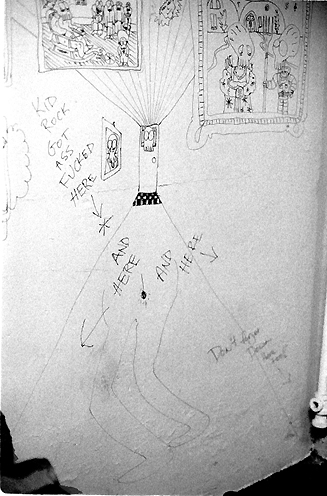 KID
ROCK
GOT
ASS
FUCKED
HERE
AND
HERE
AND HERE
Don't forget
Down
here